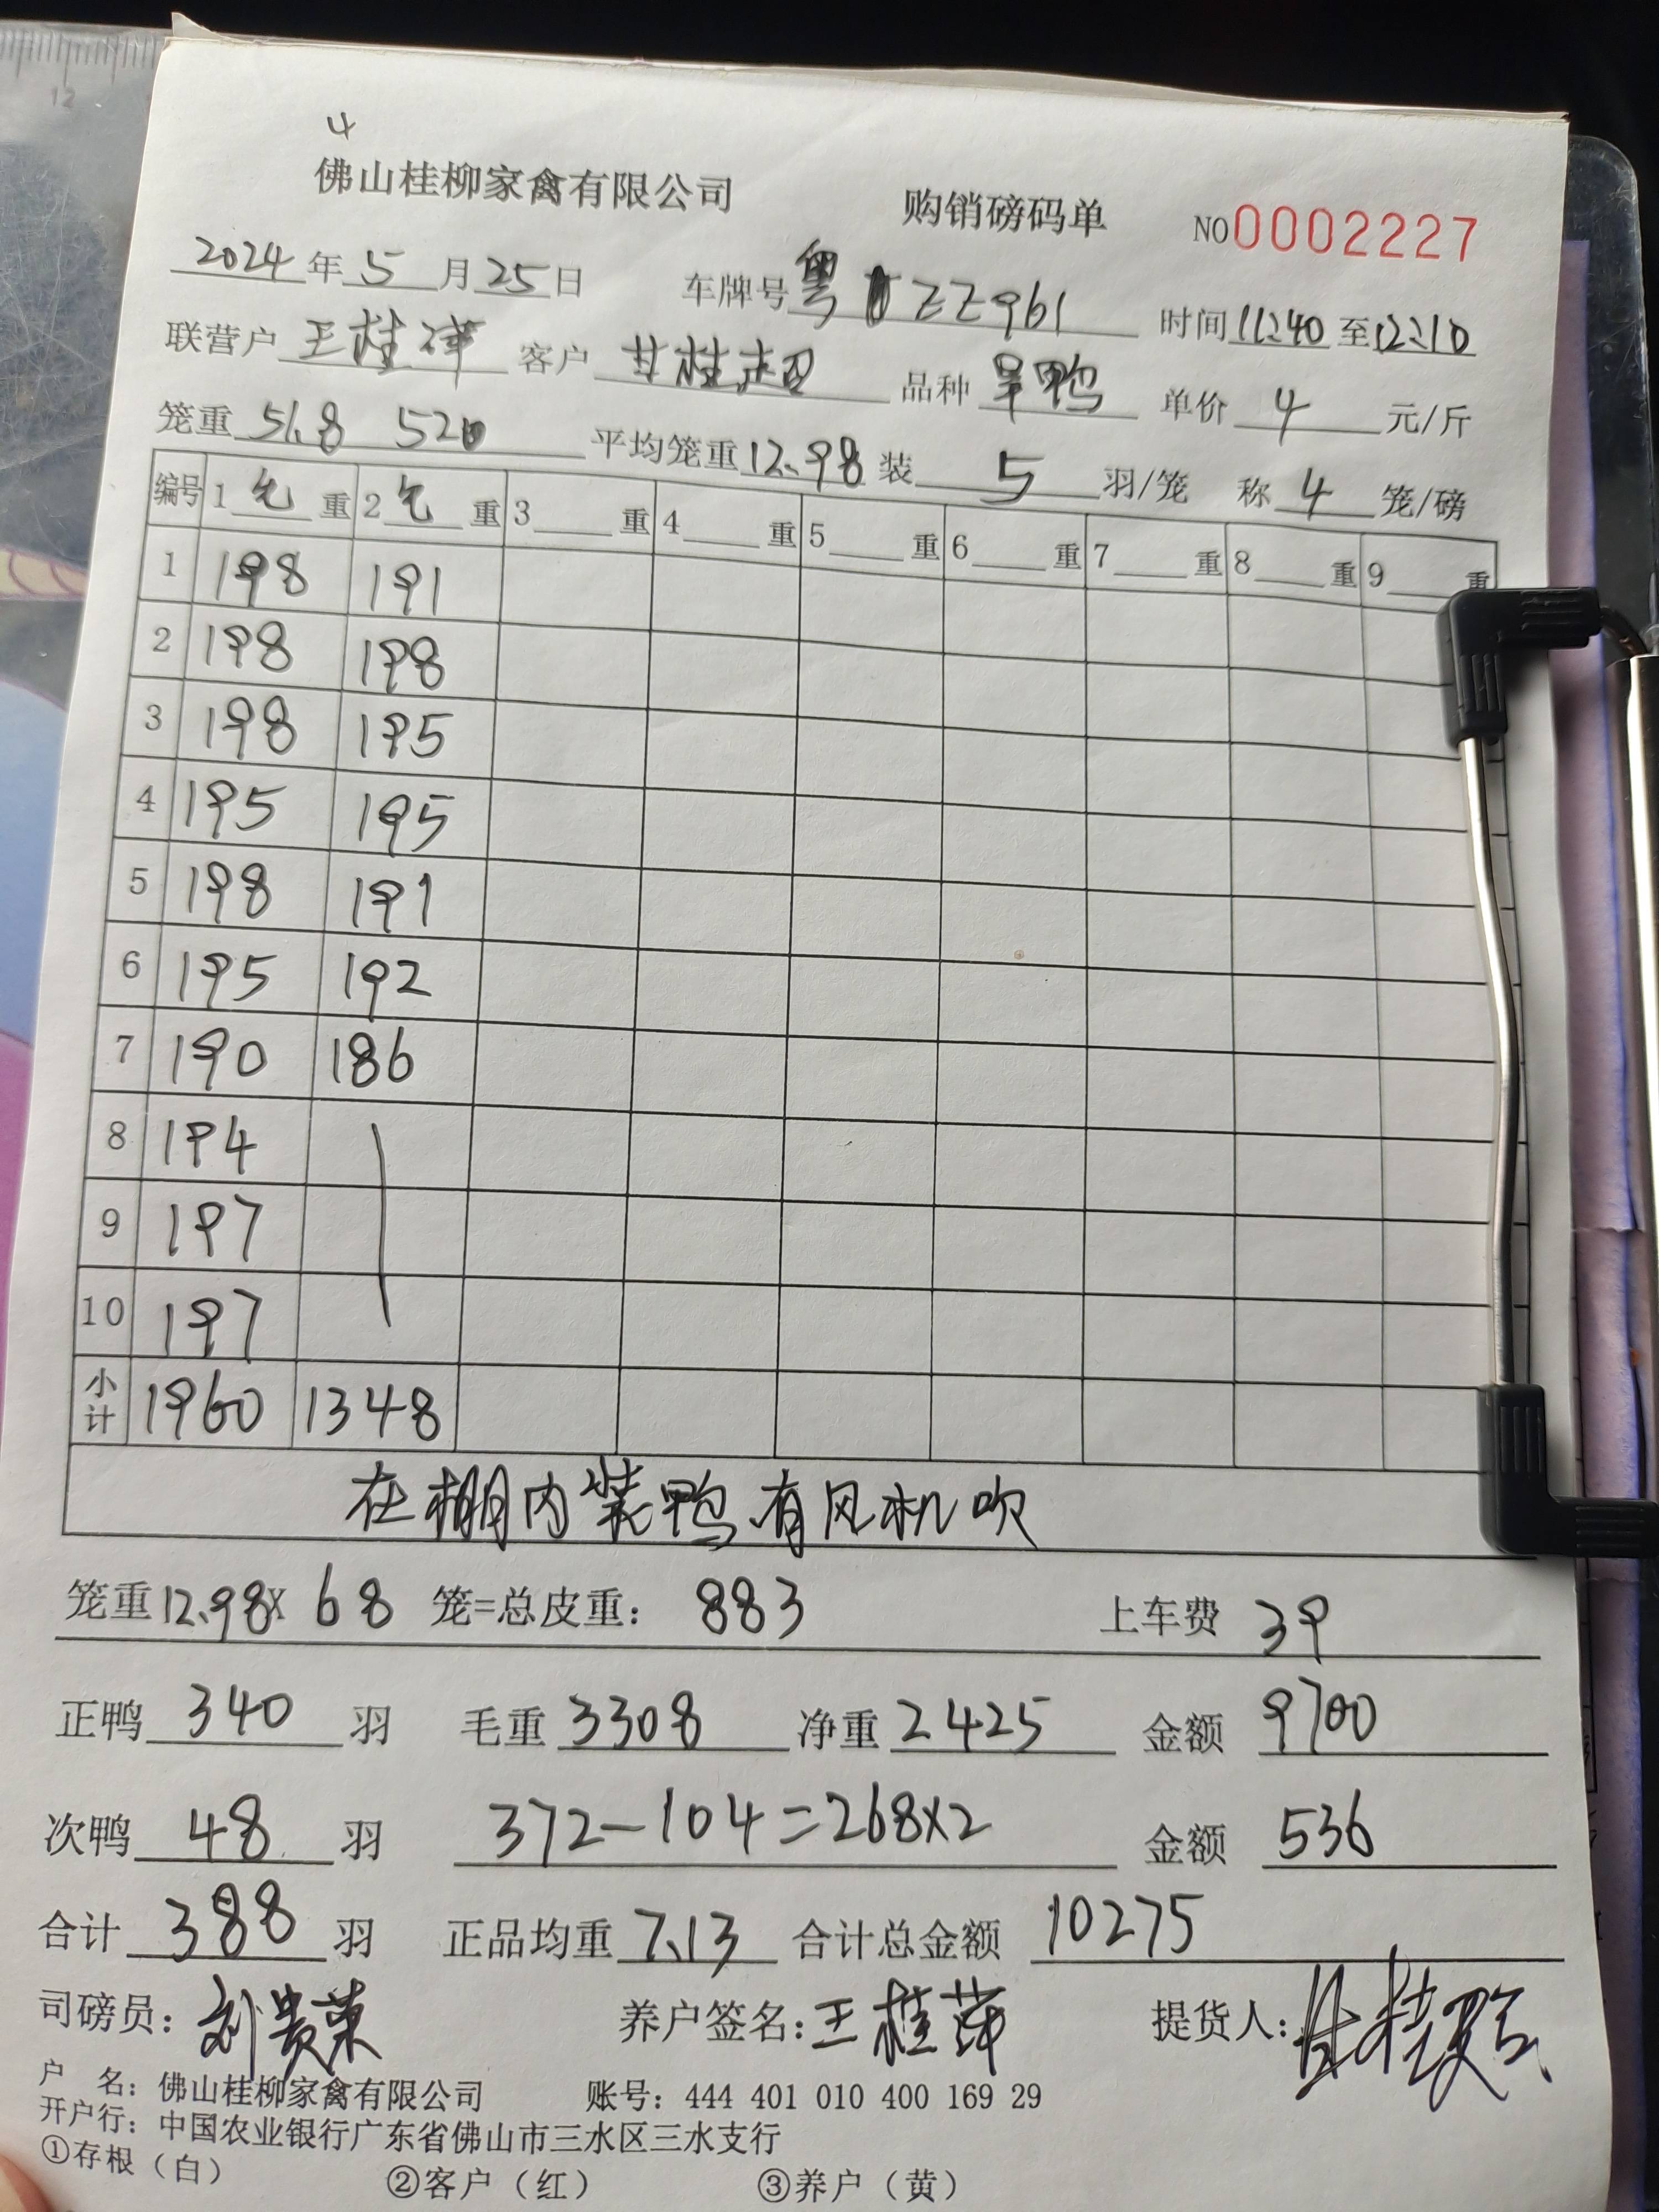 12
4
佛山桂柳家禽有限公司 购销磅码单 NO0002227
2024年5月25日 车牌号粤 ZZ961 时间11:40至12:10
联营户 王桂萍 客户 甘桂超 品种 旱鸭 单价 4 元/斤
笼重 51.8 520 平均笼重12.98装 5 羽/笼 称 4 笼/磅
编号 1毛重 2毛重 3 重 4 重 5 重 6 重 7 重 8 重 9 重
1 198 191
2 198 198
3 198 195
4 195 195
5 198 191
6 195 192
7 190 186
8 194
9 197
10 197
小计 1960 1348
在棚内装鸭有风机吹
笼重12.98× 68 笼=总皮重: 883 上车费 39
正鸭 340 羽 毛重 3308 净重 2425 金额 9700
次鸭 48 羽 372-104=268×2 金额 536
合计 388 羽 正品均重 7.13 合计总金额 10275
司磅员: 刘贵荣 养户签名: 王桂萍 提货人: 甘桂超
户 名: 佛山桂柳家禽有限公司 账号: 444 401 010 400 169 29
开户行: 中国农业银行广东省佛山市三水区三水支行
①存根(白) ②客户(红) ③养户(黄)